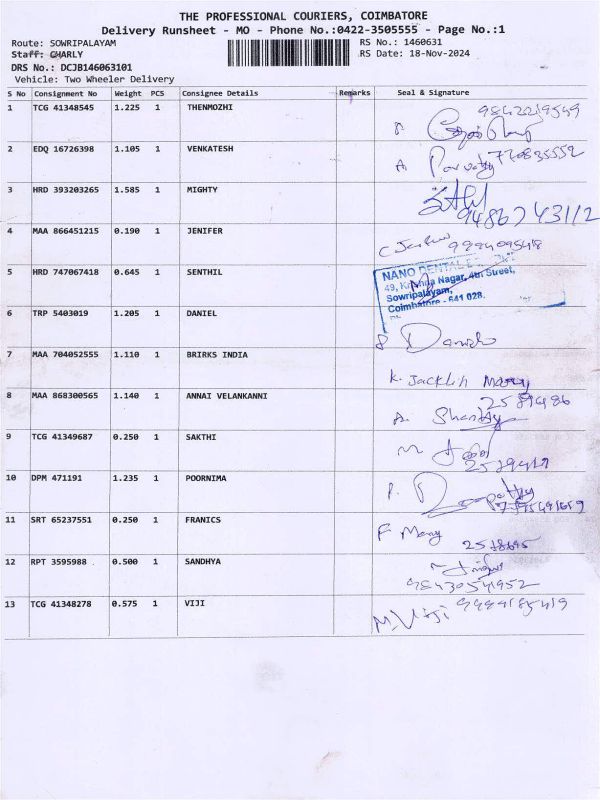 THE PROFESSIONAL COURIERS, COIMBATORE
Delivery Runsheet - MO - Phone No.:0422-3505555 - Page No.:1
Route: SOWRIPALAYAM
RS No.: 1460631
Staff: CHARLY
RS Date: 18-Nov-2024
DRS No.: DCJB146063101
Vehicle: Two Wheeler Delivery
S No Consignment No Weight PCS Consignee Details Remarks Seal & Signature
1 TCG 41348545 1.225 1 THENMOZHI
2 EDQ 16726398 1.105 1 VENKATESH
3 HRD 393203265 1.585 1 MIGHTY
4 MAA 866451215 0.190 1 JENIFER
5 HRD 747067418 0.645 1 SENTHIL
NANO DENTAL
49, Krishna Nagar, 4th Street,
Sowripalayam,
Coimbatore - 641 028.
6 TRP 5403019 1.205 1 DANIEL
7 MAA 704052555 1.110 1 BRIRKS INDIA
K. Jacklin Mary
8 MAA 868300565 1.140 1 ANNAI VELANKANNI
2589486
A. Shanthy
9 TCG 41349687 0.250 1 SAKTHI
10 DPM 471191 1.235 1 POORNIMA
11 SRT 65237551 0.250 1 FRANICS
F Mary
12 RPT 3595988 0.500 1 SANDHYA
13 TCG 41348278 0.575 1 VIJI
M. Viji